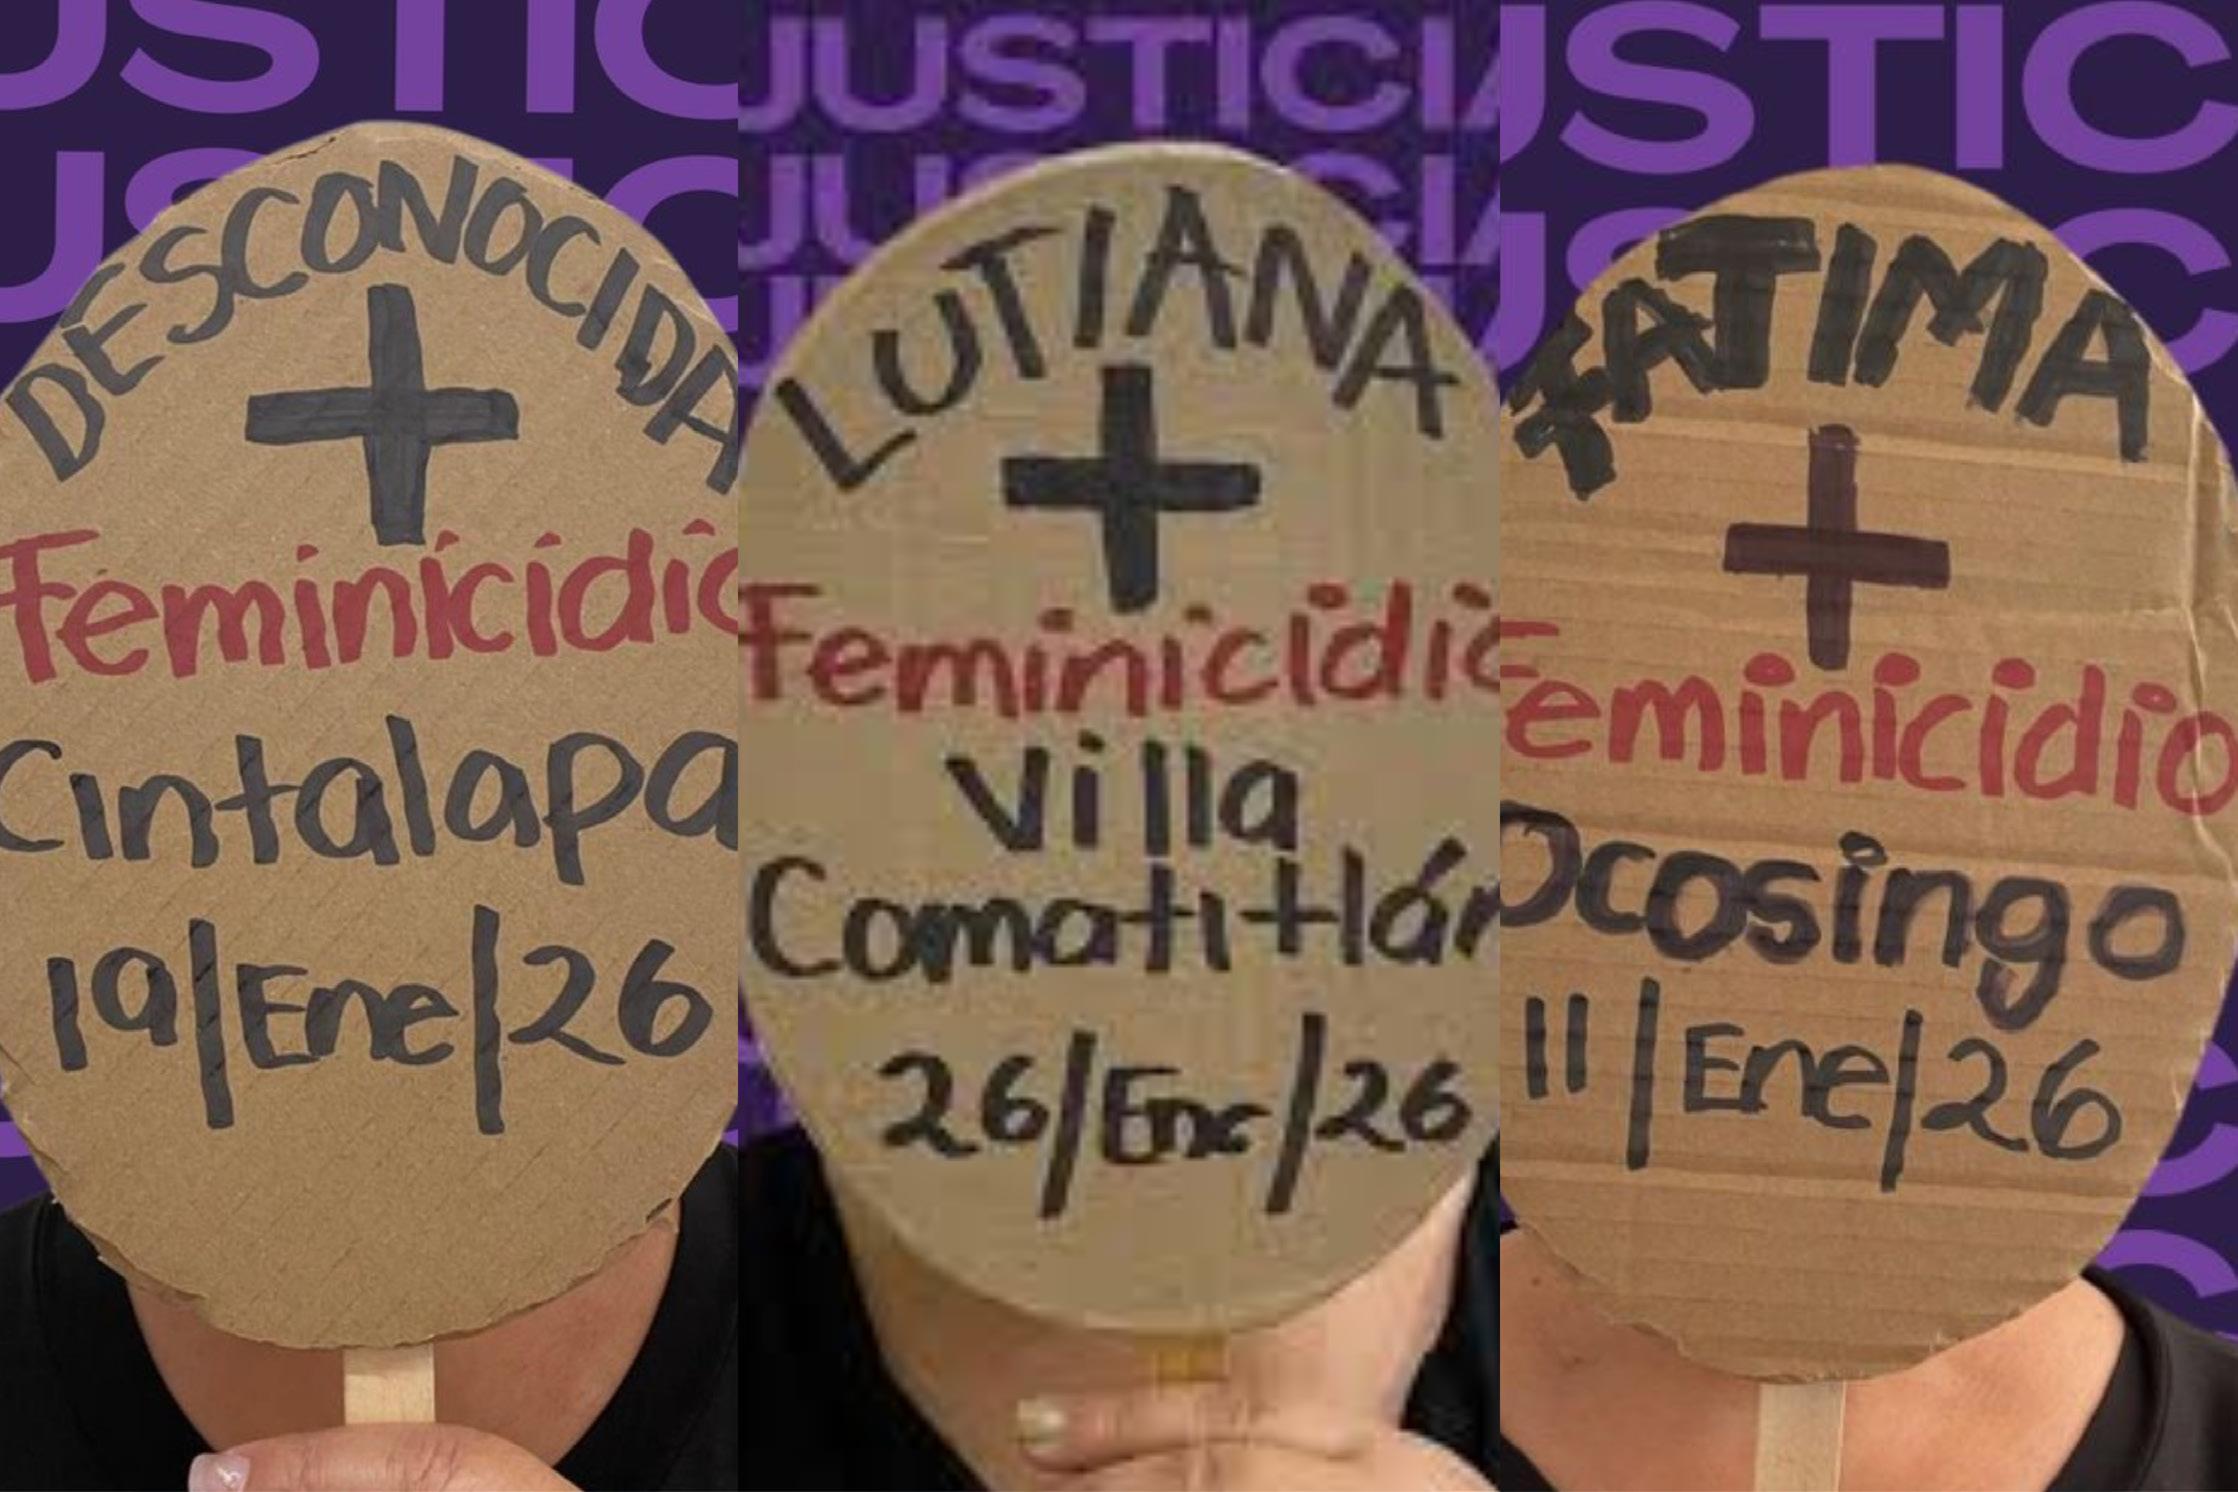 USTIC
USTIC
DESCONOCIDA
Feminicidio
Cintalapa
19/Ene/26
JUSTICIA
JUSTICIA
LUTIANA
Feminicidio
Villa
Comatitlán
26/Ene/26
JUSTIC
USTIC
FATIMA
Feminicidio
Ocosingo
11/Ene/26